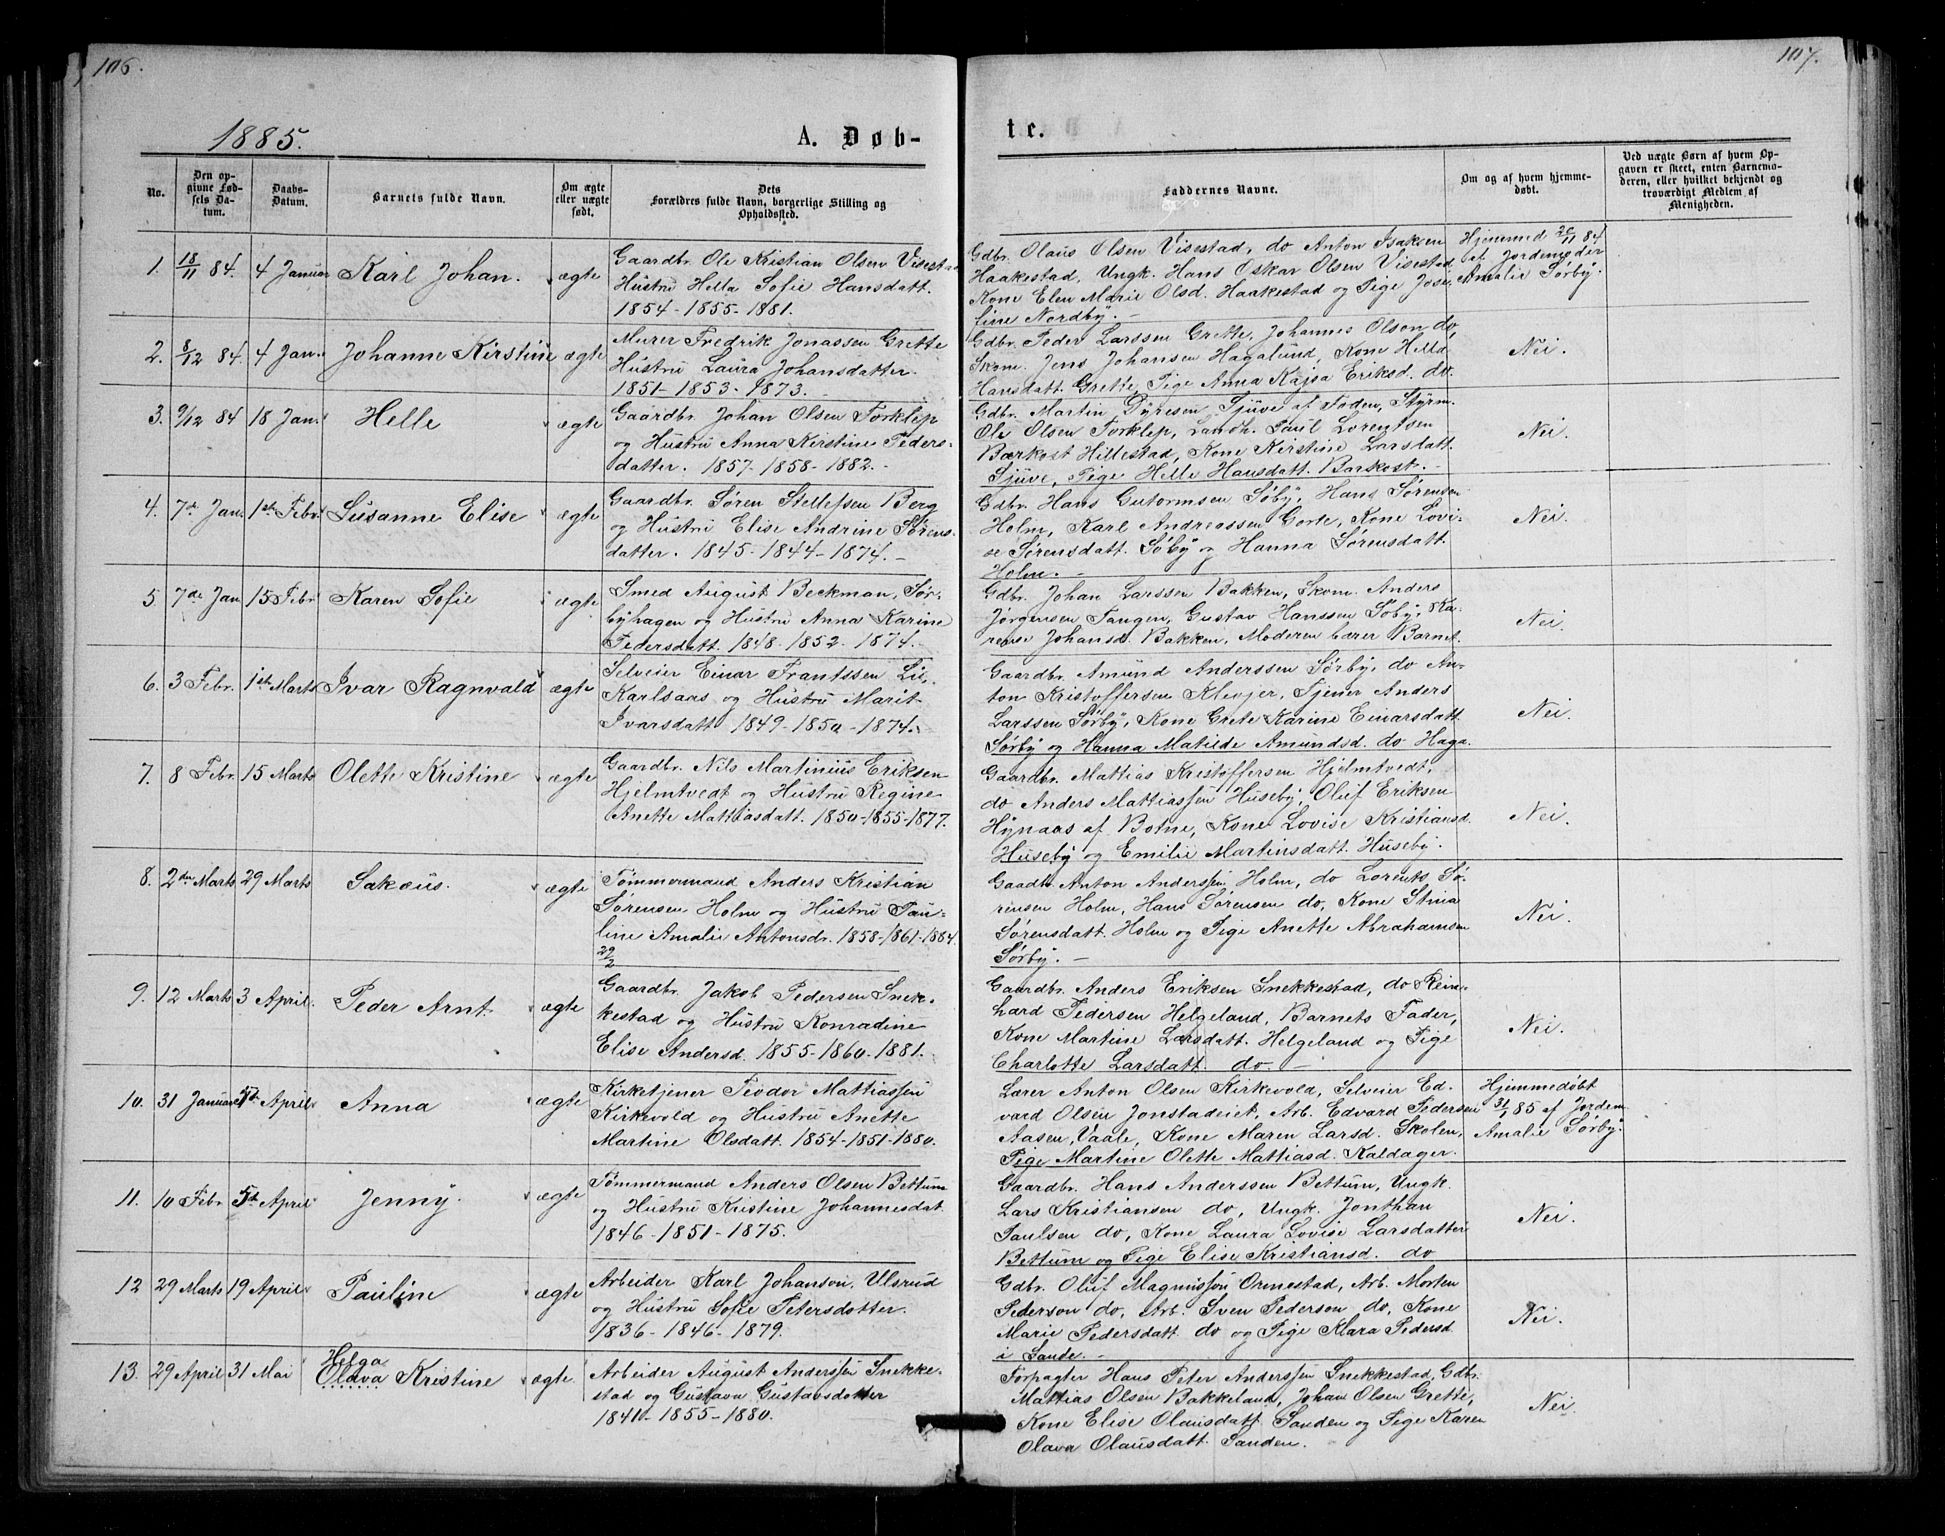 106.
1885.
A. Døb-
No.
Den op-
givne Fød-
sels Da-
tum.
Daabs-
Datum.
Barnets fulde Navn.
Om ægte
eller uægte
født.
Dets
Forældres fulde Navn, borgerlige Stilling og
Opholdssted.
1. 18/11 84. 4 Januar Karl Johan. ægte
Gaardbr. Ole Kristian Olsen Visestad
Hustru Hella Sofie Hansdatt.
1854 - 1855 - 1881.
2. 8/12 84. 4 Jan. Johanne Kirstine ægte
Murer Fredrik Jonassen Grette
Hustru Laura Johansdatter.
1851 - 1853 - 1873.
3. 9/12 84 18 Jan. Helle ægte
Gaardbr. Johan Olsen Torklep
og Hustru Anna Kirstine Peders-
datter. 1857 - 1858 - 1882.
4. 7de Jan. 1ste Febr. Susanne Elise ægte
Gaardbr. Søren Stellefsen Berg
og Hustru Elise Andrine Sørens-
datter. 1845 - 1844 - 1874.
5. 7de Jan 15 Febr Karen Sofie ægte
Smed August Beckman, Sør-
byhagen og Hustru Anna Karine
Pedersdatt. 1848 - 1852 - 1874.
6. 3 Febr. 1ste Marts Ivar Ragnvald ægte
Selveier Einar Frantssen Lie,
Karlsaas og Hustru Marit
Ivarsdatt 1849 - 1850 - 1874.
7. 8 Febr. 15 Marts Olette Kristine ægte
Gaardbr. Nils Martinius Eriksen
Hjelmtvedt og Hustru Regine
Anette Mattiasdatt. 1850 - 1855 - 1877.
8. 2den Marts 29 Marts Sakæus. ægte
Tømmermand Anders Kristian
Sørensen Holm og Hustru Pau-
line Amalie Antonsdr. 1858 - 1861 - 1884.
29/2
9. 12 Marts 3 April. Peder Arnt ægte
Gaardbr. Jakob Pedersen Snek-
kestad og Hustru Konradine
Elise Andersd. 1855 - 1860 - 1881.
10. 31 Januar 5te April Anna ægte
Kirketjener Teodor Mattiassen
Kirkevold og Hustru Anette
Martine Olsdatt. 1854 - 1851 - 1880.
11. 10 Febr 5te April Jenny. ægte
Tømmermand Anders Olsen Bettum
og Hustru Kristine Johannesdat
1846 - 1851 - 1875.
12 29 Marts 19 April Pauline ægte
Arbeider Karl Johanson, Ulsrud
og Hustru Sofie Petersdotter.
1836 - 1846 - 1879.
13. 29 April 31 Mai Helga
Olava Kristine ægte
Arbeider August Anderssen Snekke-
stad og Gustava Gustavsdotter
1841 - 1855 - 1880.
107.
te.
Faddernes Navne.
Om og af hvem hjemme-
døbt.
Ved uægte Børn af hvem Op-
gaven er skeet, enten Barnemo-
deren, eller hvilket bekjendt og
troværdigt Medlem af
Menigheden.
Gdbr. Olaus Olsen Visestad, do Anton Isaksen
Haakestad, Ungk. Hans Oskar Olsen Visestad
Kone Elen Marie Olsd. Haakestad og Pige Jose-
fine Nordby. -
Hjemmed 20/11 84.
af Jordemoder
Amalie Sørby.
Gdbr. Peder Larssen Grette, Johannes Olson do,
Skom. Jens Johansen Hagalund, Kone Helld
Hansdatt. Grette, Pige Anna Kajsa Eriksd. do.
Nei.
Gdbr. Martin Dyresen Sjuve af Foden, Styrm.
Ole Olsen Torklep, Landh. Paul Lorentsen
Bærkost Hillestad, Kone Kirstine Larsdatt.
Sjuve, Pige Helle Hansdatt. Barkost. -
Nei.
Gdbr. Hans Gutormsen Søby, Hans Sørensen
Holm, Karl Andreassen Gorte, Kone Lovi-
se Sørensdatt. Søby og Hanna Sørensdatt.
Holm. -
Nei.
Gdbr. Johan Larssen Bakken, Skom. Anders
Jørgensen Tangen, Gustav Hanssen Søby, Ka-
rense Johansd. Bakken, Moderen bærer Barnet.
Nei.
Gaardbr. Amund Anderssen Sørby, do An-
ton Kristoffersen Klevjer, Tjener Anders
Larssen Sørby, Kone Grete Karine Einarsdatt.
Sørby og Hanna Matilde Amundsd. do Haga.
Nei.
Gaardbr. Mattias Kristoffersen Hjelmtvedt,
do Anders Mattiassen Huseby, Oluf Eriksen
Hynaas af Botne, Kone Lovise Kristiansd
Huseby og Emilie Martinsdatt. Huseby.
Nei.
Gaadbr Anton Anderssen Holm, do Lorents Sø-
rensen Holm, Hans Sørensen do, Kone Stina
Sørensdatt. Holm og Pige Anette Abrahamsen
Sørby. -
Nei.
Gaardbr. Anders Eriksen Snekkestad, do Rein-
hard Pedersen Helgeland, Barnets Fader,
Kone Martine Larsdatt. Helgeland og Pige
Charlotte Larsdatt. do. -
Nei.
Lærer Anton Olsen Kirkevold, Selveier Ed-
vard Olsen Jonstadeiet, Arb. Edvard Pedersen
Aasen, Vaale, Kone Maren Larsd. Skolen,
Pige Martine Olette Mattiasd. Kaldager.
Hjemmedøbt
31/1 85 af Jordem.
Amalie Sørby.
Gaardbr. Hans Anderssen Bettum, Ungk.
Lars Kristiansen do, Ungk. Jonthan
Paulsen do, Kone Laura Lovise Larsdatter
Bettum og Pige Elise Kristiansd. do
Nei.
Gdbr. Oluf Magnussen Ormestad, Arb. Morten
Pederson do, Arb. Sven Pederson do, Kone
Marie Pedersdatt do og Pige Klara Pedersd
i Sande. -
Nei.
Forpagter Hans Peter Anderssen Snekkestad, Gdbr.
Mattias Olsen Bakkeland, Johan Olsen Grette,
Kone Elise Olausdatt. Sanden og Pige Karen
Olava Olausdatt. Sanden.
Nei.